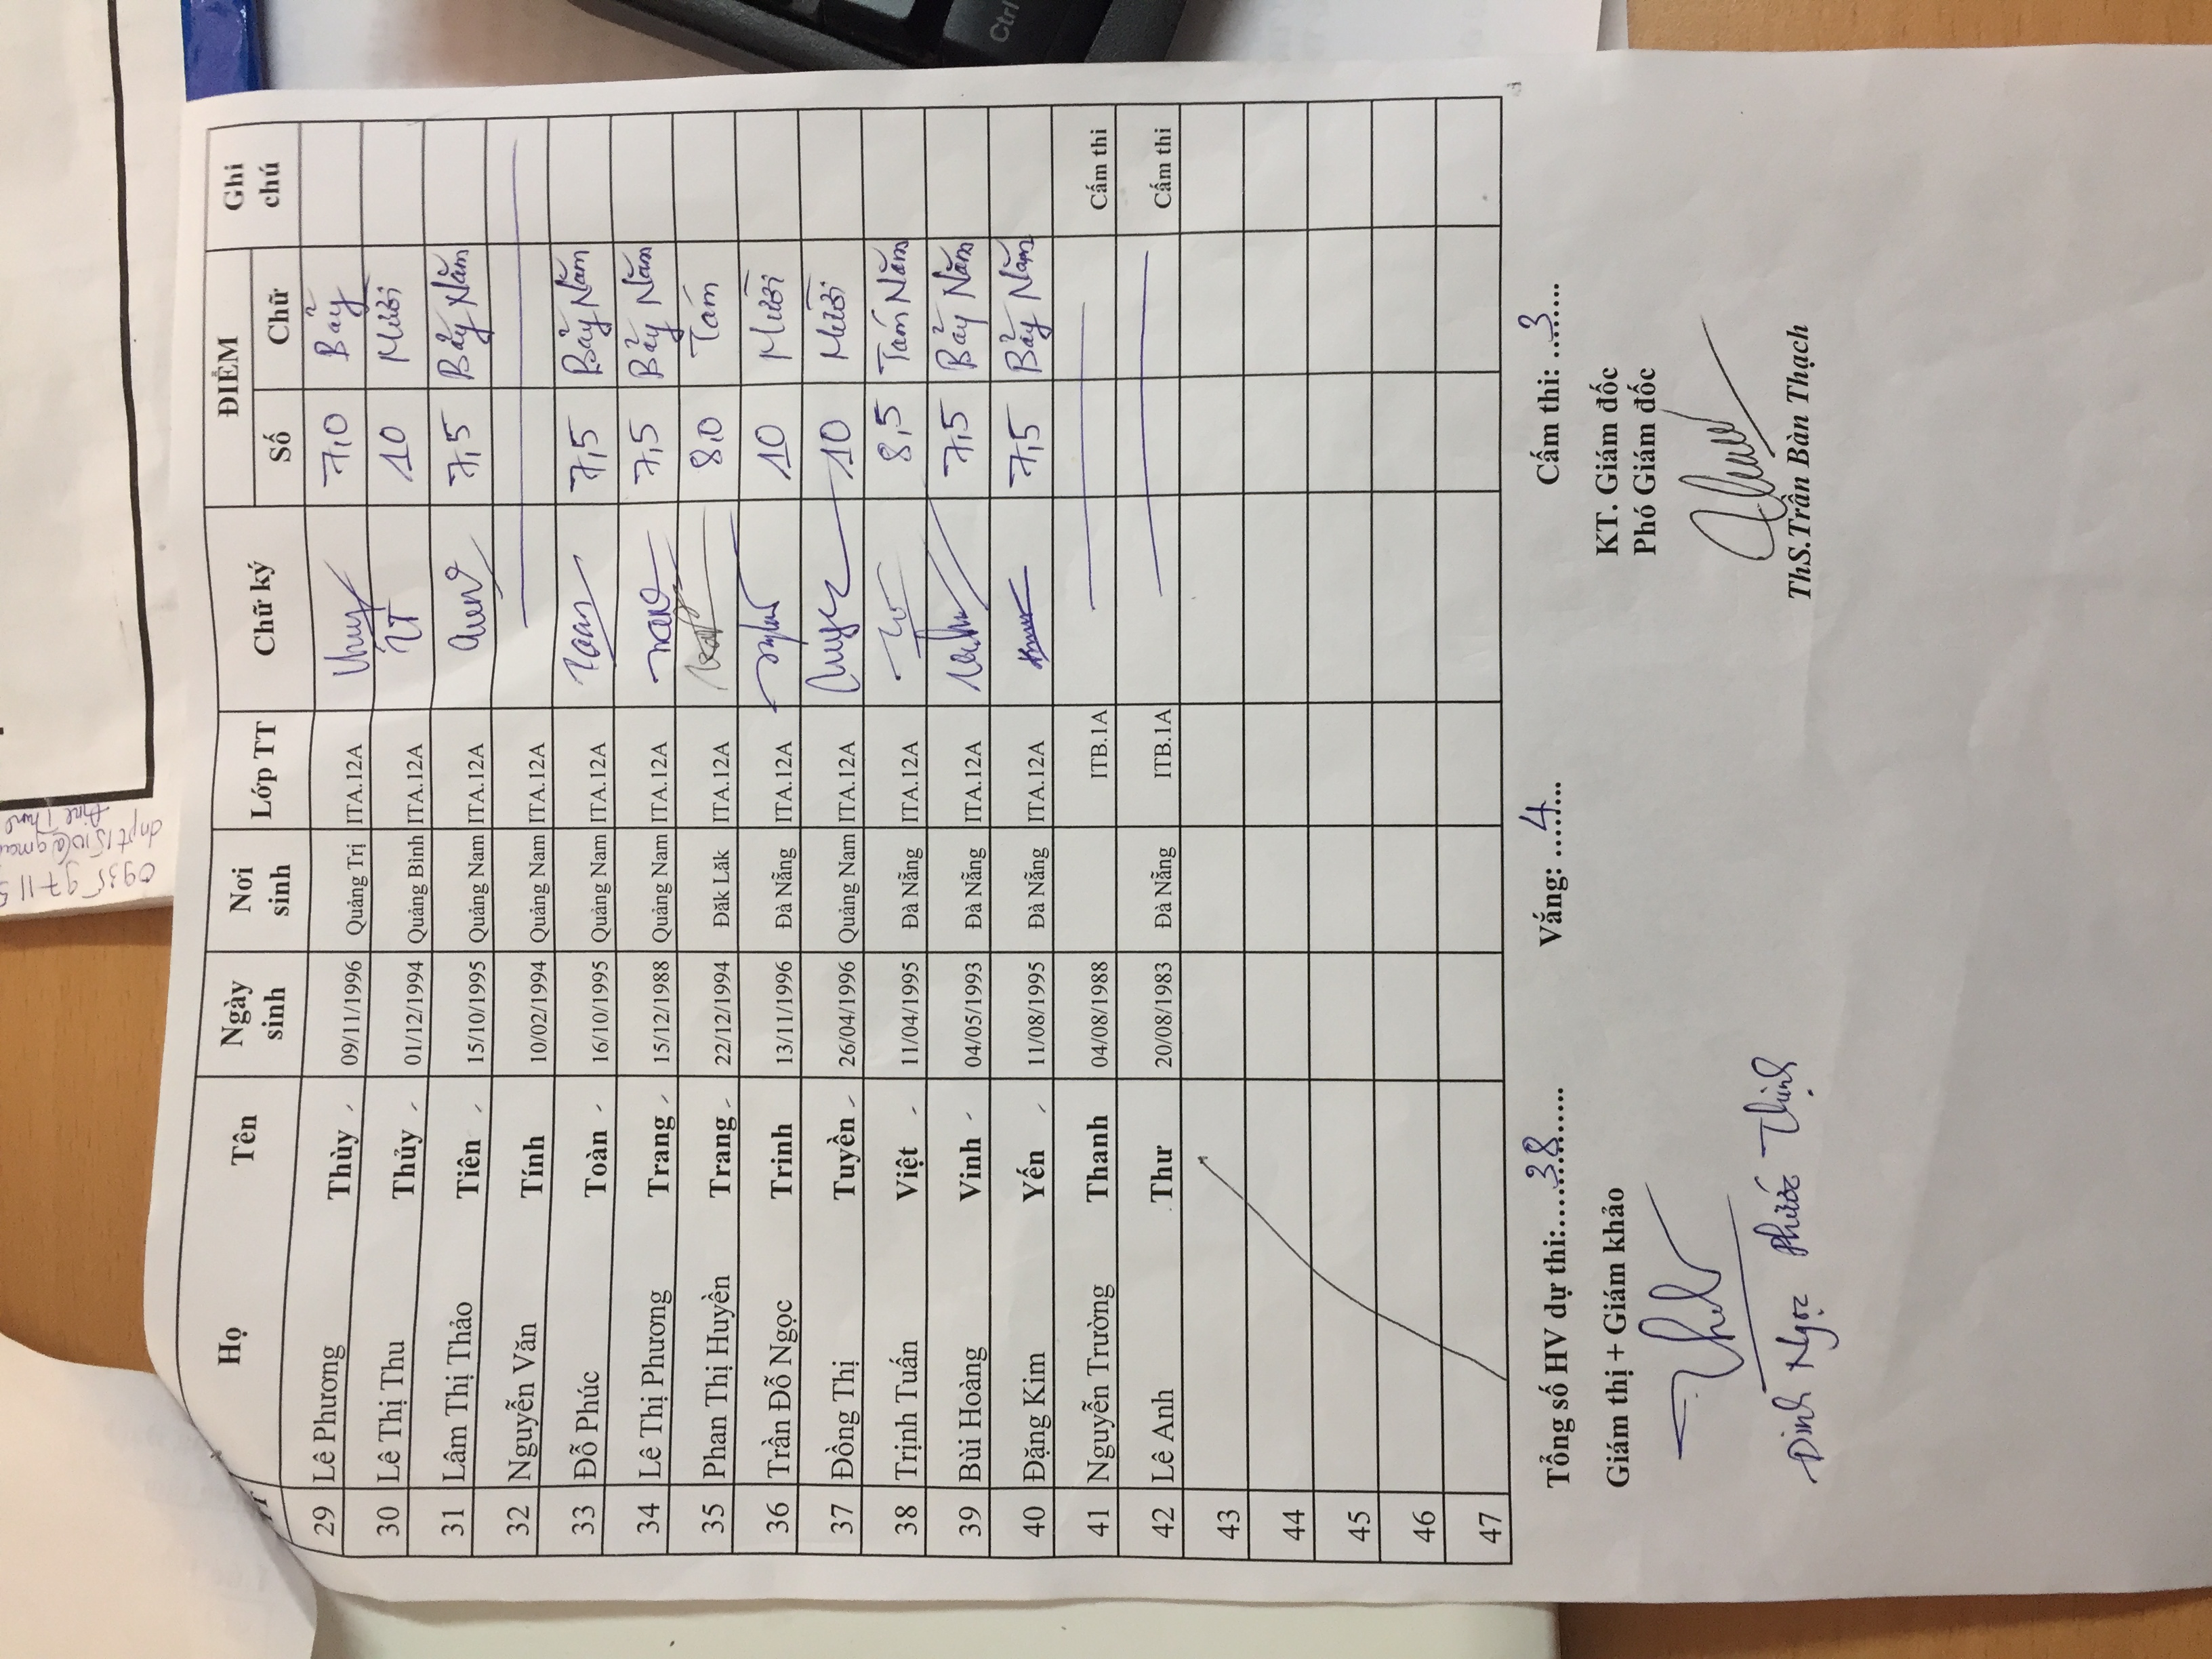 Họ Tên Ngày sinh Nơi sinh Lớp TT Chữ ký ĐIỂM Ghi chú
Số Chữ
29 Lê Phương Thùy 09/11/1996 Quảng Trị ITA.12A 7,0 Bảy
30 Lê Thị Thu Thủy 01/12/1994 Quảng Bình ITA.12A 10 Mười
31 Lâm Thị Thảo Tiên 15/10/1995 Quảng Nam ITA.12A 7,5 Bảy Năm
32 Nguyễn Văn Tính 10/02/1994 Quảng Nam ITA.12A
33 Đỗ Phúc Toàn 16/10/1995 Quảng Nam ITA.12A 7,5 Bảy Năm
34 Lê Thị Phương Trang 15/12/1988 Quảng Nam ITA.12A 7,5 Bảy Năm
35 Phan Thị Huyền Trang 22/12/1994 Đăk Lăk ITA.12A 8,0 Tám
36 Trần Đỗ Ngọc Trinh 13/11/1996 Đà Nẵng ITA.12A 10 Mười
37 Đồng Thị Tuyền 26/04/1996 Quảng Nam ITA.12A 10 Mười
38 Trịnh Tuấn Việt 11/04/1995 Đà Nẵng ITA.12A 8,5 Tám Năm
39 Bùi Hoàng Vinh 04/05/1993 Đà Nẵng ITA.12A 7,5 Bảy Năm
40 Đặng Kim Yến 11/08/1995 Đà Nẵng ITA.12A 7,5 Bảy Năm
41 Nguyễn Trường Thanh 04/08/1988 ITB.1A Cấm thi
42 Lê Anh Thư 20/08/1983 Đà Nẵng ITB.1A Cấm thi
43
44
45
46
47
Tổng số HV dự thi:....38...... Vắng: .....4..... Cấm thi: ...3.....
Giám thị + Giám khảo KT. Giám đốc
Phó Giám đốc
Đinh Ngọc Phước Thịnh
ThS.Trần Bàn Thạch
Ctrl